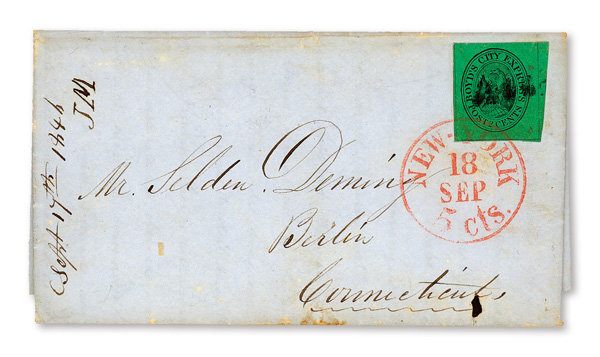 BOYD'S CITY EXPRESS
POST 2 CENTS
NEW-YORK
18
SEP
5 cts.
Mr. Selden. Deming
Berlin
Connecticut,
Sept 17th 1846